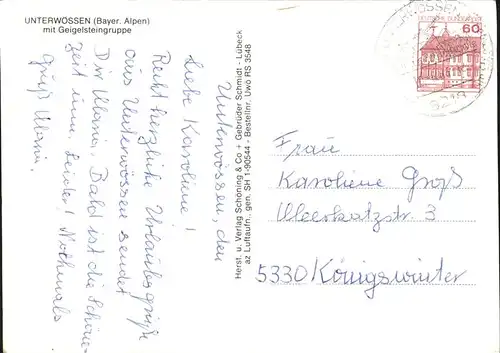 UNTERWÖSSEN (Bayer. Alpen)
mit Geigelsteingruppe
Unterwössen, den
Liebe Karoliene!
Recht herzliche Urlaubsgrüße
aus Unterwössen sendet
Dir Maria. Bald ist die Schöne
Zeit um. Leider! Nochmals
Gruß Maria.
Herst. u. Verlag Schöning & Co + Gebrüder Schmidt - Lübeck
az Luftaufn., gen. SH 1-90544 - Bestellnr. Uwö RS 3548
DEUTSCHE BUNDESPOST
60
Frau
Karoliene Groß
3
5330 Königswinter